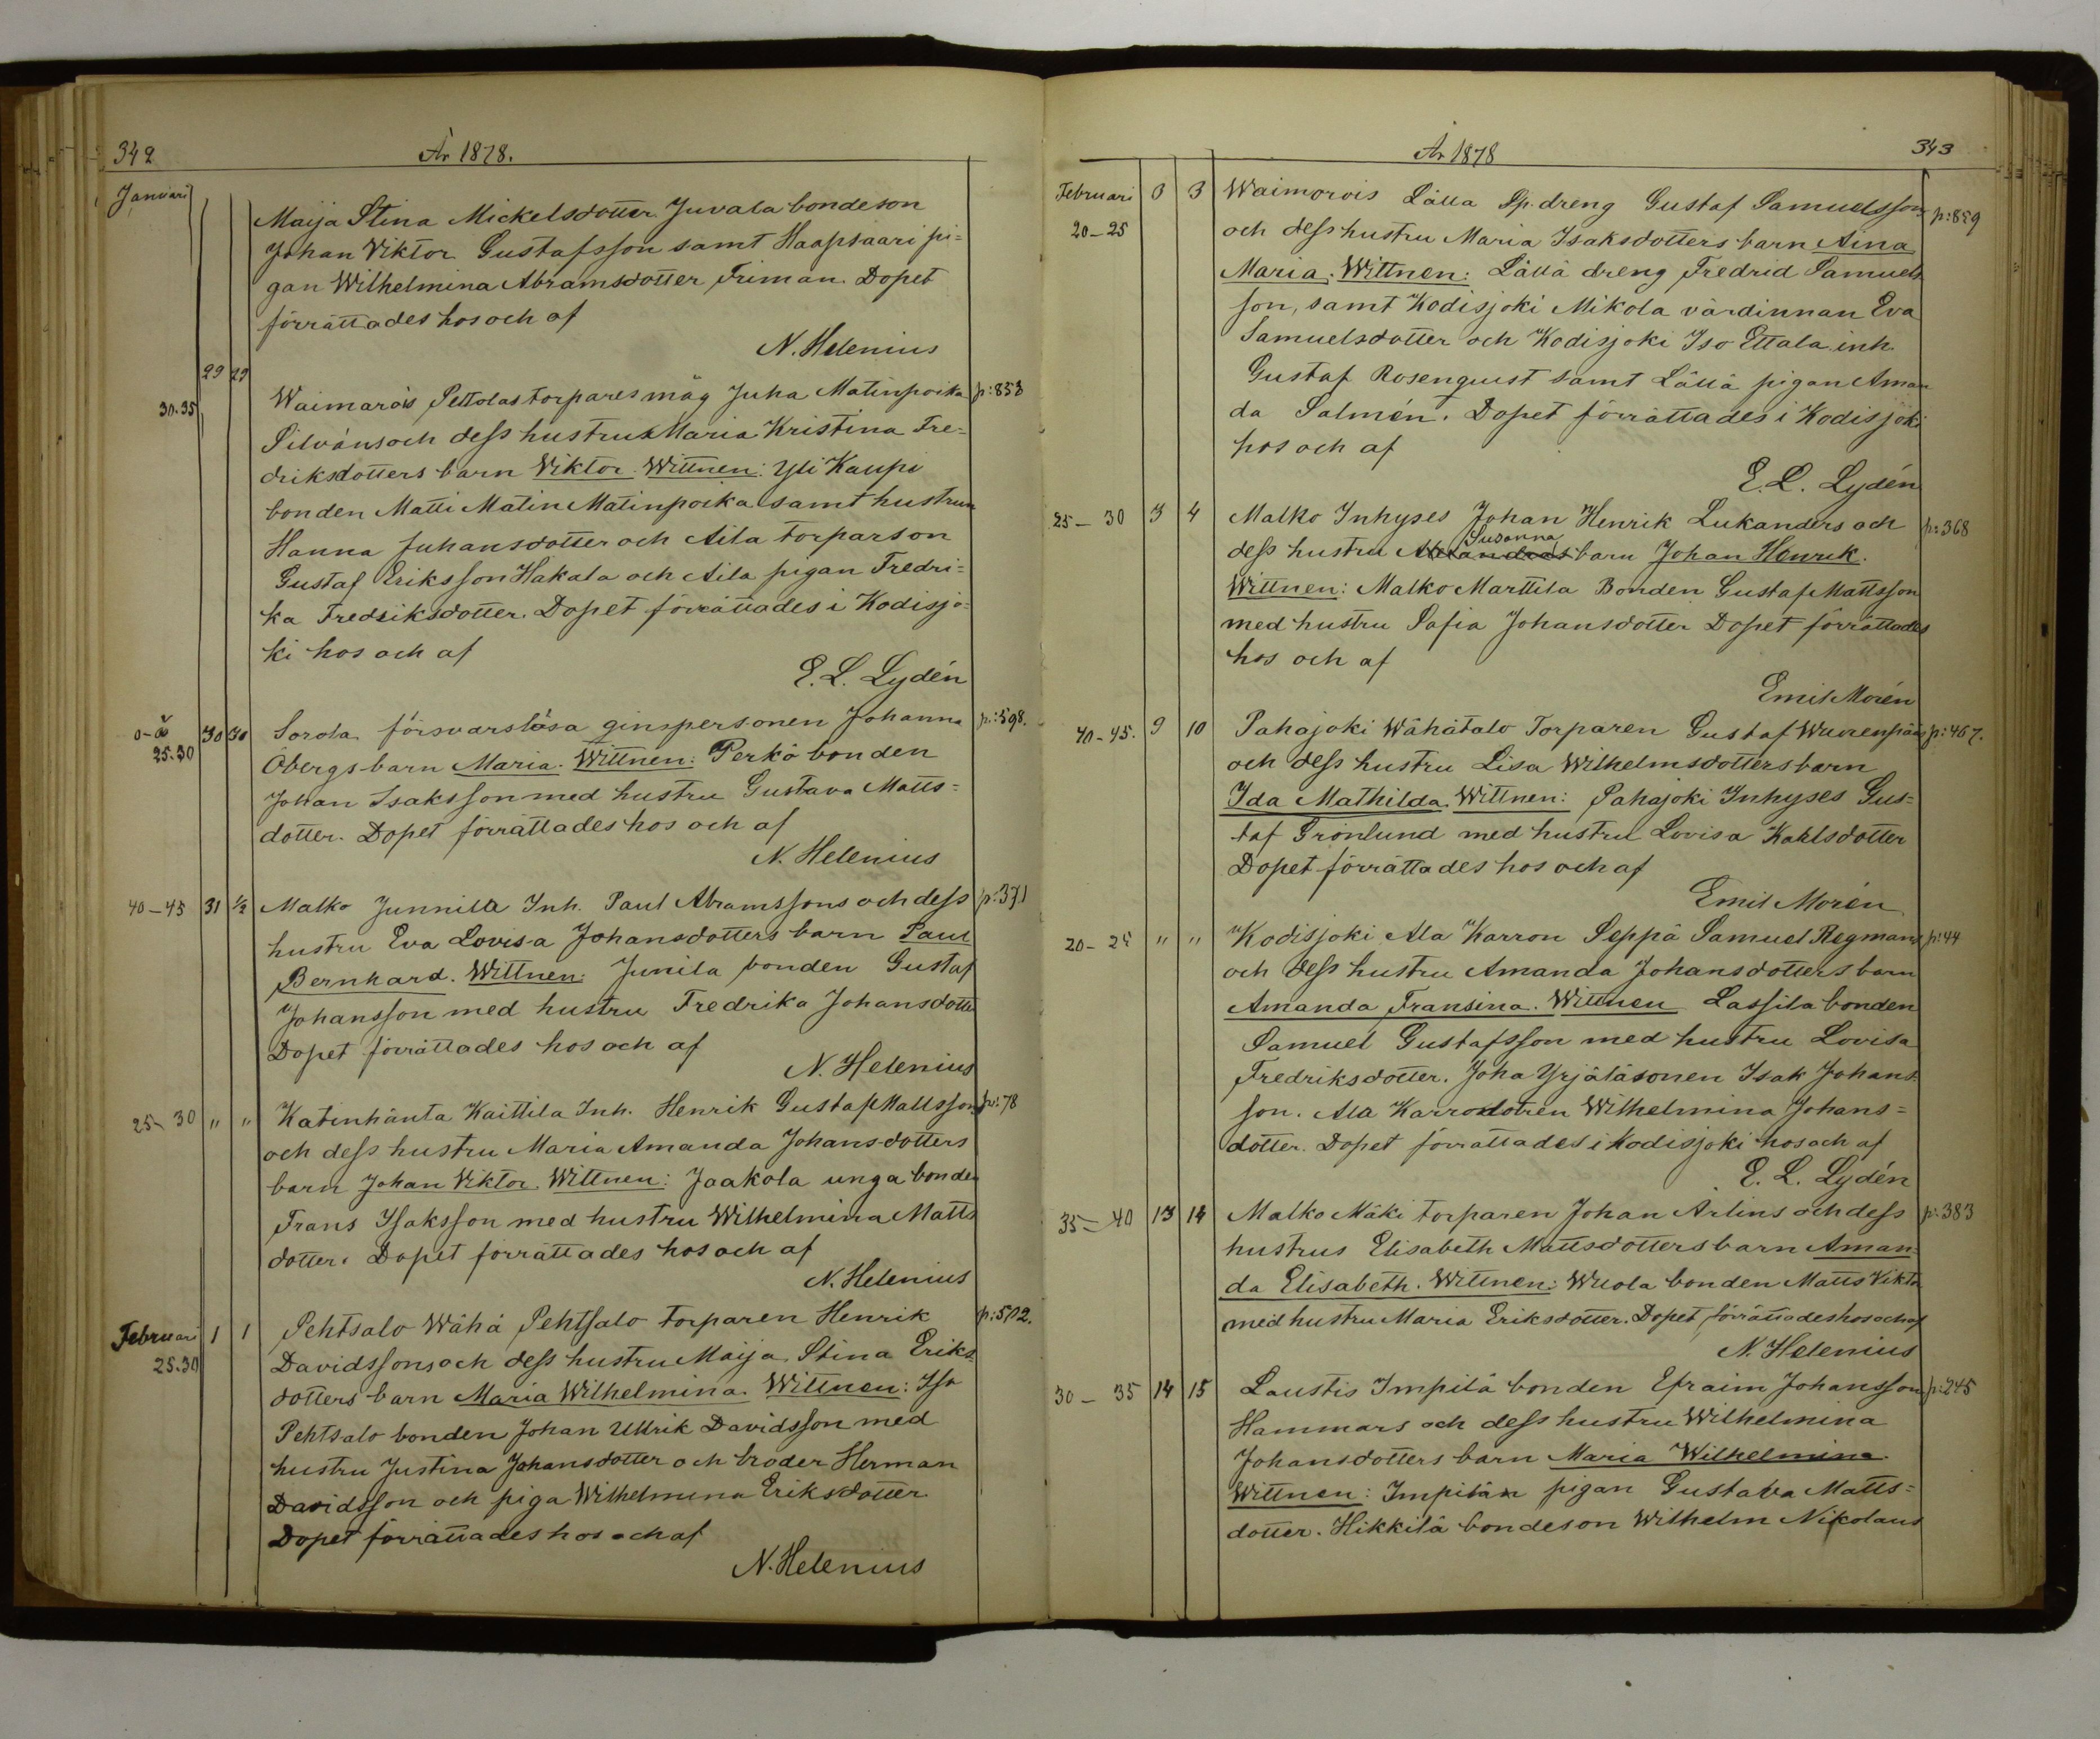 342
År 1878.
Januari
Maija Stina Mickelsdotter. Juvala bondeson
Johan Viktor Gustafsson samt Haapsaari pi=
gan Wilhelmina Abramsdotter Friman. Dopet
förrättades hos och af
N. Helenius
29 29
30-35 Waimarois Pettolas torpares måg Juha Matinpoika p: 853
Silvåns och dess hustrus Maria Kristina Fre=
driksdotters barn Viktor. Wittnen: Yli Kaupi
bonden Matti Matin Matinpoika samt hustrun
Hanna Juhansdotter och Aila torparson
Gustaf Eriksson Hakala och Aila pigan Fredri=
ka Fredriksdotter. Dopet förrättades i Kodisjo=
ki hos och af
E. L. Lydén
25.30 30 30 Sorola försvarslösa qinspersonen Johanna p: 598.
Öbergs barn Maria. Wittnen: Perkö bonden
Johan Isaksson med hustru Gustava Matts=
dotter. Dopet förrättades hos och af
N. Helenius
40-45 31 1/2 Malko Junnila Inh. Paul Abramssons och dess p: 371
hustru Eva Lovisa Johansdotters barn Paul
Bernhard. Wittnen: Junila bonden Gustaf
Johansson med hustru Fredrika Johansdotter
Dopet förrättades hos och af
N. Helenius
25-30 " " Katinhänta Kaittila Inh. Henrik Gustaf Mattssons p: 78
och dess hustru Maria Amanda Johansdotters
barn Johan Viktor. Wittnen: Jaakola unga bonden
Frans Isaksson med hustru Wilhelmina Matts
dotter. Dopet förrättades hos och af
N. Helenius
Februari 1 1 Pehtsalo Wähä Pehtsalo torparen Henrik p: 502.
25.30 Davidssons och dess hustru Maija Stina Eriks=
dotters barn Maria Wilhelmina. Wittnen: Iso
Pehtsalo bonden Johan Ullrik Davidsson med
hustru Justina Johansdotter och broder Herman
Davidsson och piga Wilhelmina Eriksdotter
Dopet förrättades hos och af
N. Helenius
År 1878
343
Februari 3 3 Waimorois Lälla Sp. dreng Gustaf Samuelssons p: 859
20-25 och dess hustru Maria Isaksdotters barn Aina
Maria. Wittnen: Lällä dreng Fredrid Samuels
son, samt Kodisjoki Mikola värdinnan Eva
Samuelsdotter och Kodisjoki Iso Ettala inh.
Gustaf Rosenquist samt Lällä pigan Aman
da Salmén. Dopet förrättades i Kodisjoki
hos och af
E. L. Lydén
25-30 3 4 Malko Inhyses Johan Henrik Lukanders och p: 368
Susanna
dess hustru Alexandras barn Johan Henrik.
Wittnen: Malko Marttila Bonden Gustaf Mattsson
med hustru Sofia Johansdotter Dopet förrättades
hos och af
Emil Morén
40-45. 9 10 Pahajoki Wähätalo Torparen Gustaf Wuorenpääs p: 467.
och dess hustru Lisa Wilhelmsdotters barn
Ida Mathilda. Wittnen: Pahajoki Inhyses Gus=
taf Grönlund med hustru Lovisa Kahlsdotter
Dopet förrättades hos och af
Emil Morén
20-25 " " Kodisjoki Ala Karron Seppä Samuel Regmans p: 44
och dess hustru Amanda Johansdotters barn
Amanda Fransina. Wittnen Lassila bonden
Samuel Gustafsson med hustru Lovisa
Fredriksdotter. Joha Yrjäläsonen Isak Johans
son. Ala Karrodotren Wilhelmina Johans=
dotter. Dopet förrättades i Kodisjoki hos och af
E. L. Lydén
35-40 13 14 Malko Mäki torparen Johan Arlins och dess p: 383
hustrus Elisabeth Mattsdotters barn Aman=
da Elisabeth. Wittnen: Wuola bonden Matts Vikto
med hustru Maria Eriksdotter. Dopet förrättades hos och af
N. Helenius
30-35 14 15 Laustis Impilä bonden Efraim Johansson p: 245
Hammars och dess hustru Wilhelmina
Johansdotters barn Maria Wilhelmina.
Wittnen: Impilän pigan Gustava Matts=
dotter. Hikkilä bondeson Wilhelm Nikolaus